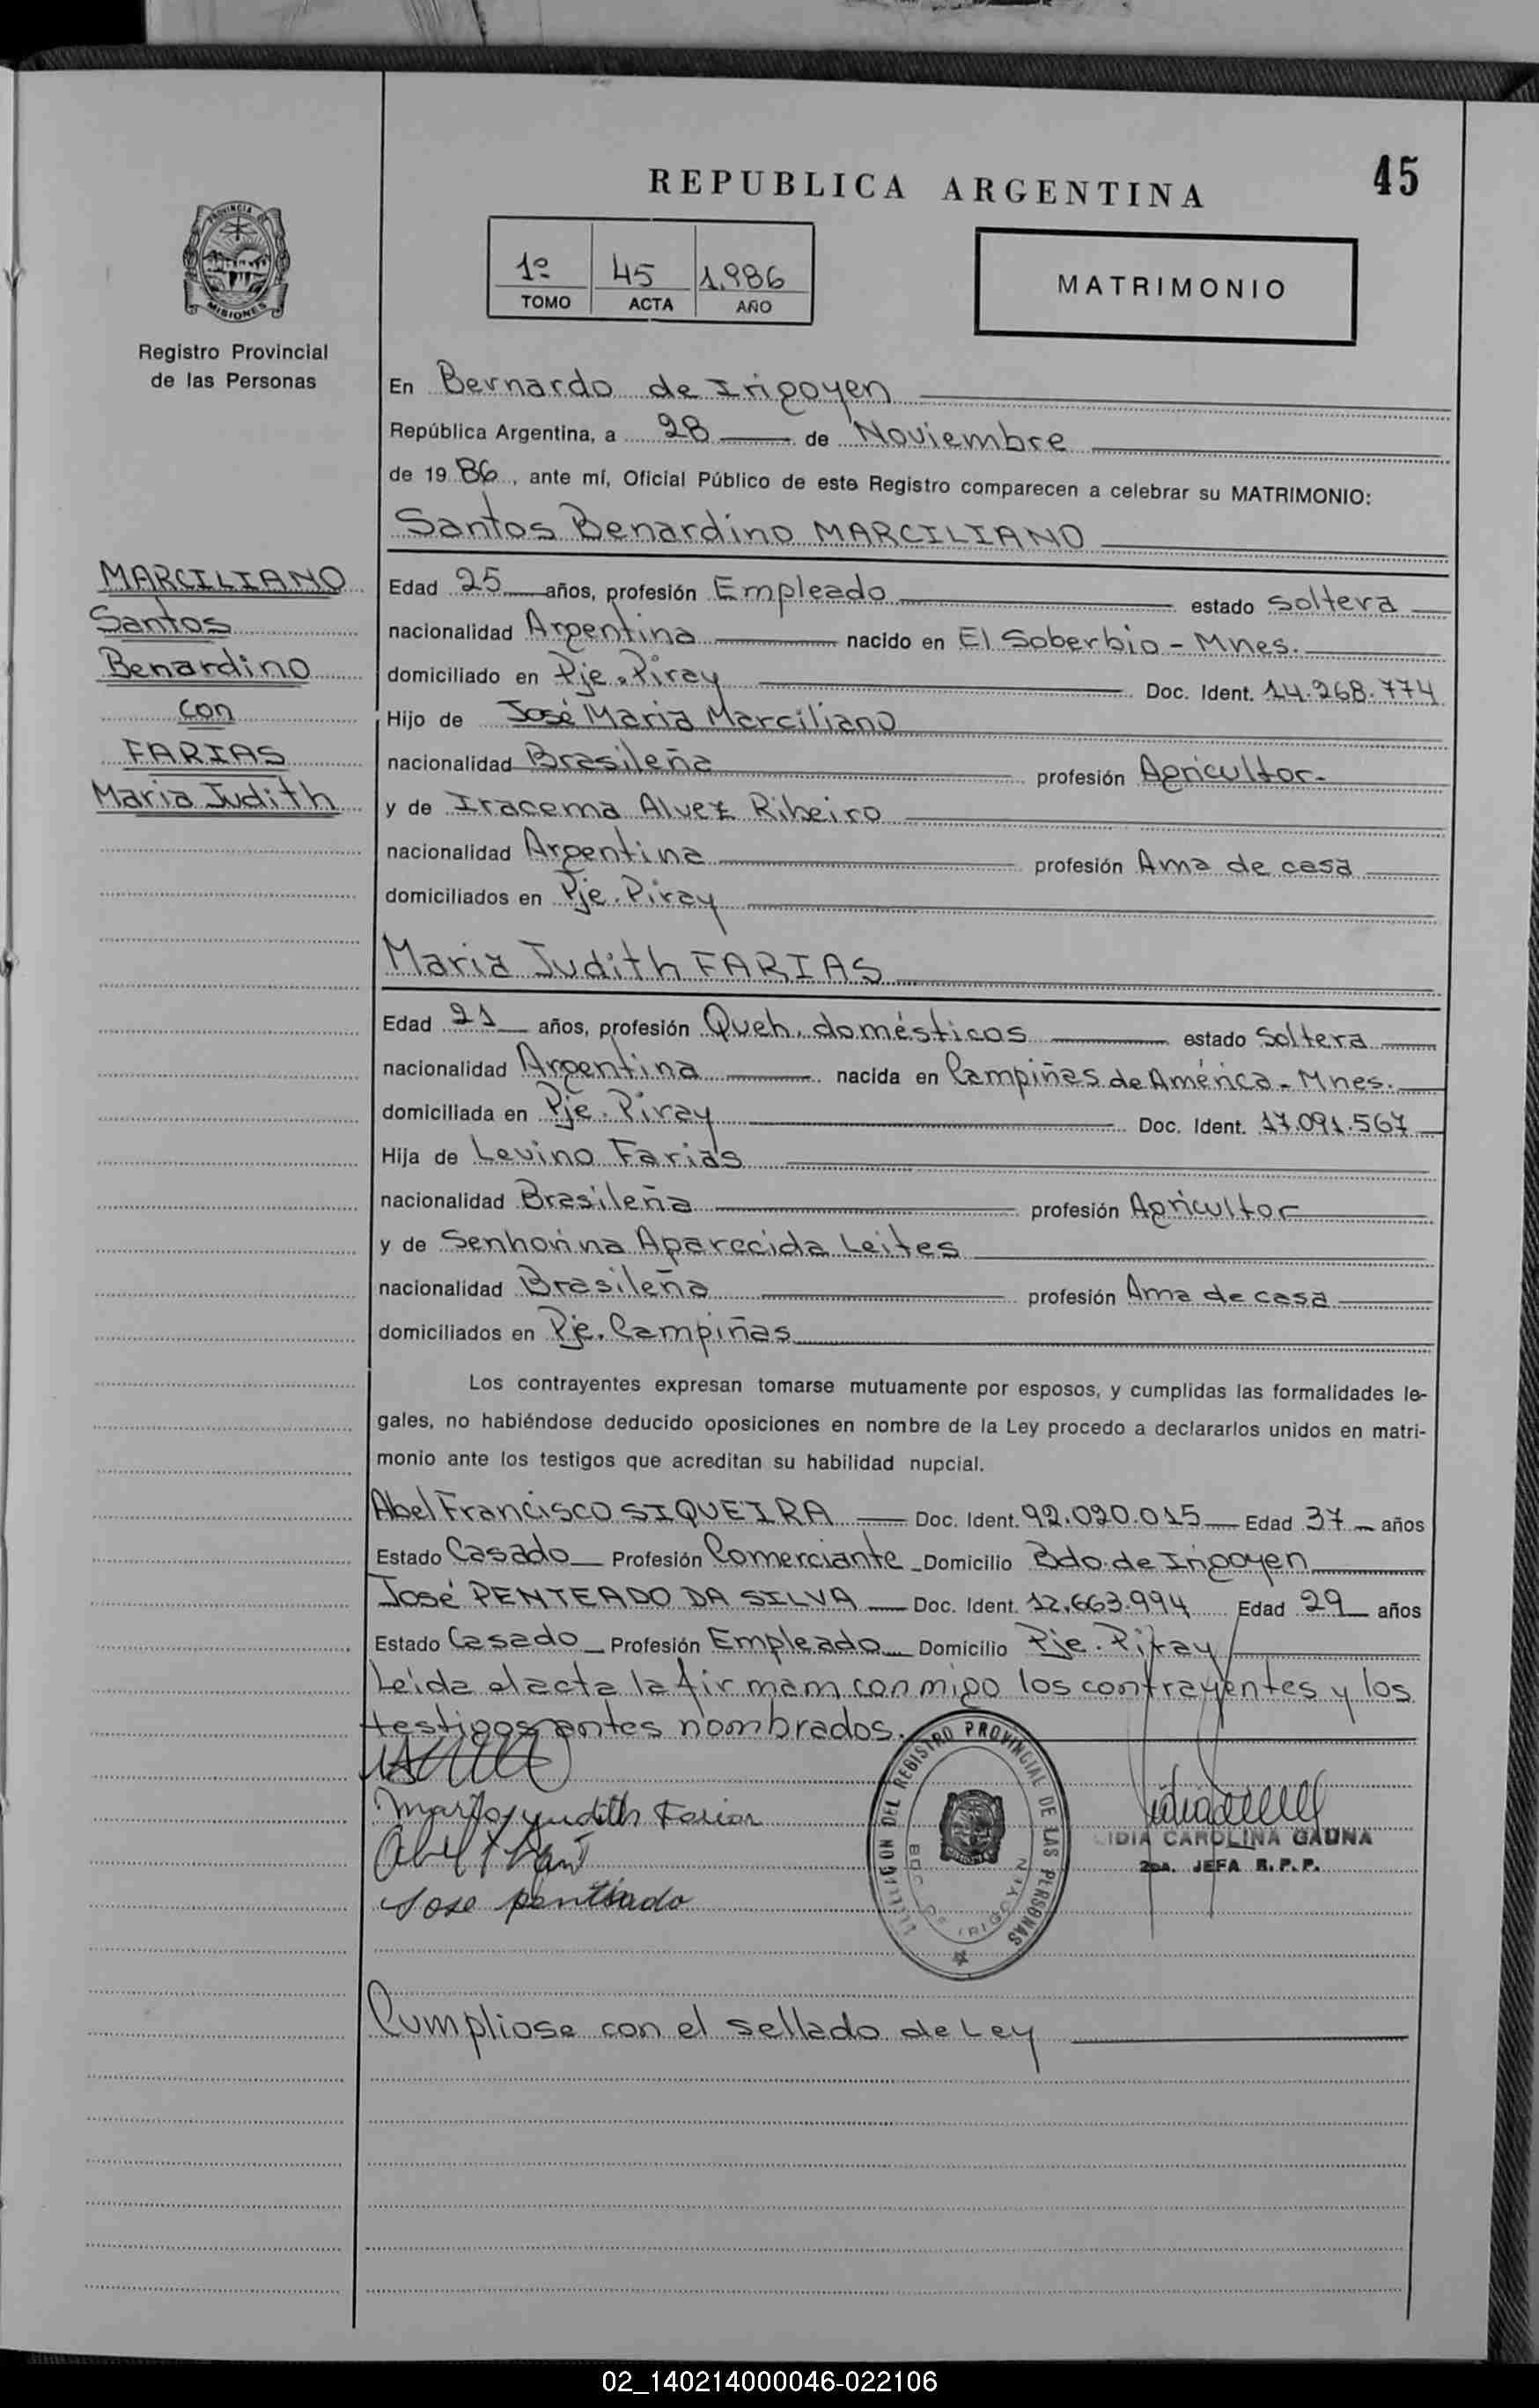 45
REPUBLICA ARGENTINA
PROVINCIA DE
MISIONES
Registro Provincial
de las Personas
1º 45 1.986
TOMO ACTA AÑO
MATRIMONIO
En Bernardo de Irigoyen
República Argentina, a 28 de Noviembre
de 19 86, ante mí, Oficial Público de este Registro comparecen a celebrar su MATRIMONIO:
Santos Benardino MARCILIANO
MARCILIANO
Santos
Benardino
con
FARIAS
Maria Judith
Edad 25 años, profesión Empleado estado soltera
nacionalidad Argentina nacido en El Soberbio - Mnes.
domiciliado en Pje. Piray Doc. Ident. 14.268.774
Hijo de José Maria Marciliano
nacionalidad Brasileña profesión Agricultor.
y de Iracema Alvez Ribeiro
nacionalidad Argentina profesión Ama de casa
domiciliados en Pje. Piray
Maria Judith FARIAS
Edad 21 años, profesión Queh. domésticos estado Soltera
nacionalidad Argentina nacida en Campiñas de América - Mnes.
domiciliada en Pje. Piray Doc. Ident. 17.091.567
Hija de Levino Farias
nacionalidad Brasileña profesión Agricultor
y de Senhorinna Aparecida Leites
nacionalidad Brasileña profesión Ama de casa
domiciliados en Pje. Campiñas
Los contrayentes expresan tomarse mutuamente por esposos, y cumplidas las formalidades le-
gales, no habiéndose deducido oposiciones en nombre de la Ley procedo a declararlos unidos en matri-
monio ante los testigos que acreditan su habilidad nupcial.
Abel Francisco SIQUEIRA Doc. Ident. 92.020.015 Edad 37 años
Estado Casado Profesión Comerciante Domicilio Bdo. de Irigoyen
José PENTEADO DA SILVA Doc. Ident. 12.663.994 Edad 29 años
Estado Casado Profesión Empleado Domicilio Pje. Piray
Leida el acta la firmam conmigo los contrayentes y los
testigos antes nombrados.
DEL REGISTRO PROVINCIAL DE LAS PERSONAS
BDO. DE IRIGOYEN
Judith Farias
Jose pentiado
LIDIA CAROLINA GAUNA
2DA. JEFA R.P.P.
Cumpliose con el sellado de Ley
02_140214000046-022106